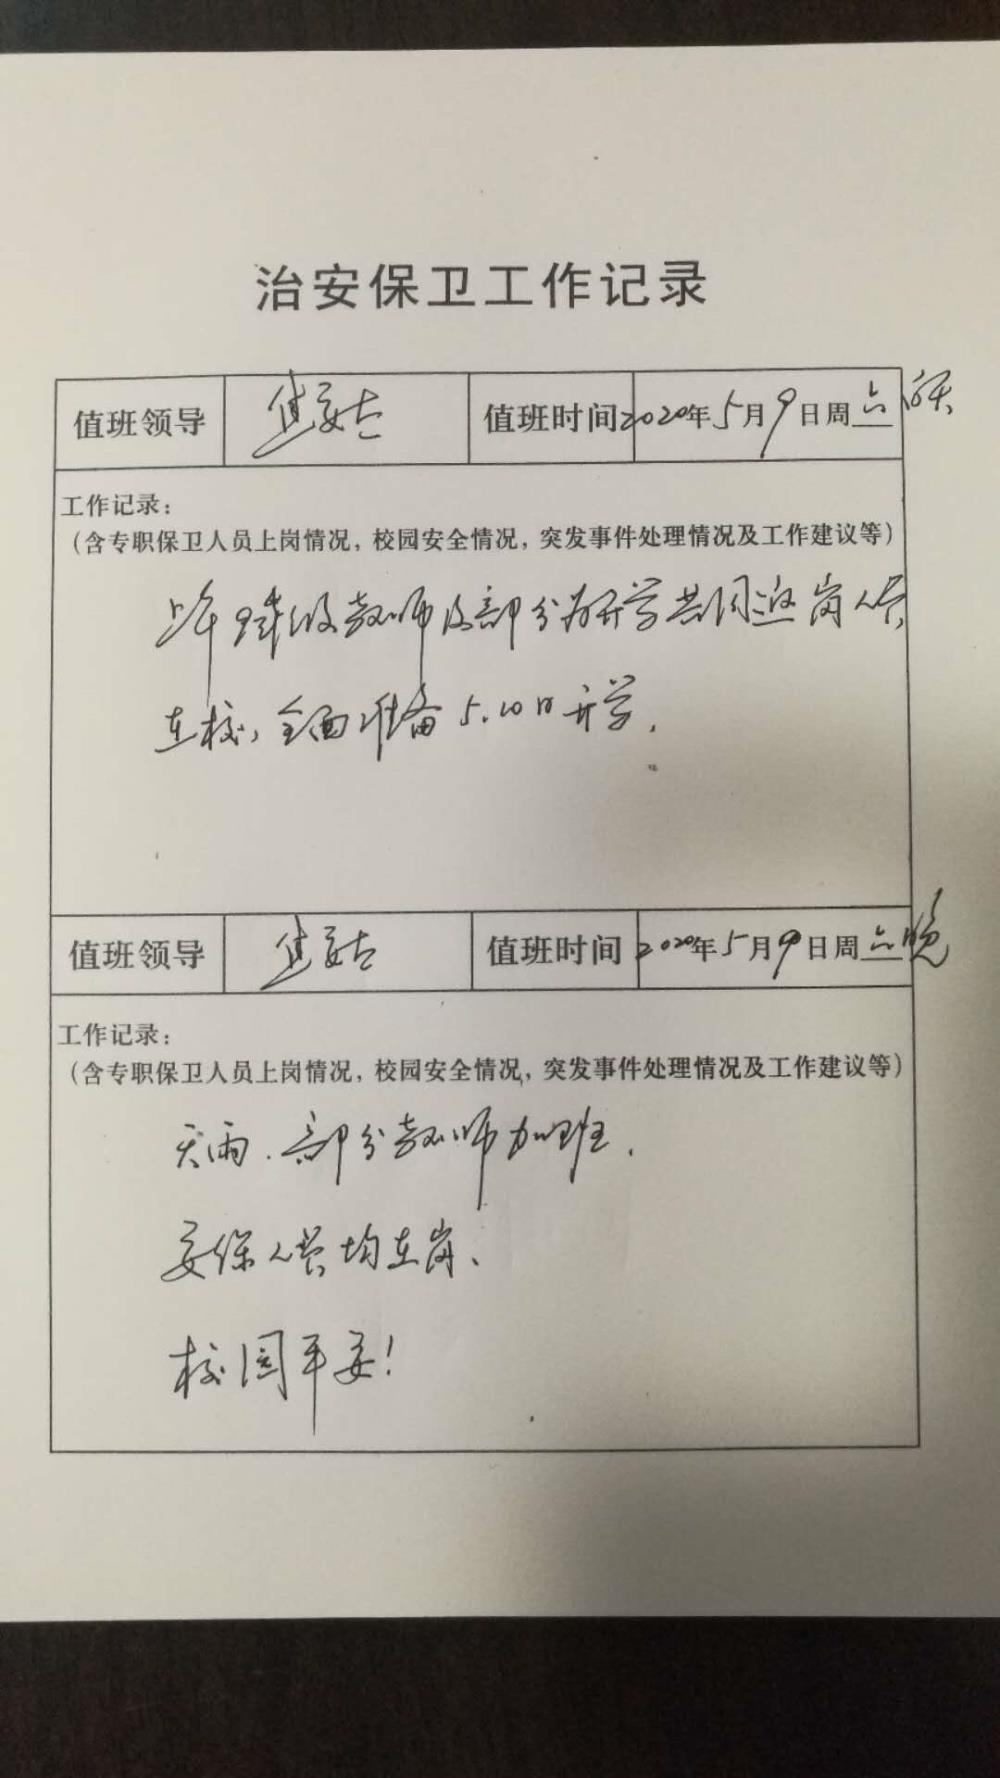 治安保卫工作记录
值班领导 焦 值班时间 2020年5月9日周六 白天
工作记录：
（含专职保卫人员上岗情况，校园安全情况，突发事件处理情况及工作建议等）
上午 9年级教师及部分为开学 岗人员
在校，全面准备5.10日开学.
值班领导 焦 值班时间 2020年5月9日周六 晚
工作记录：
（含专职保卫人员上岗情况，校园安全情况，突发事件处理情况及工作建议等）
天雨.部分教师加班.
安保人员均在岗、
校园平安！